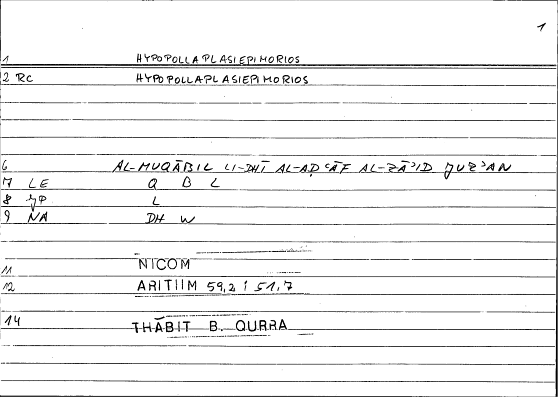 1
1 HYPOPOLLAPLASIEPIMORIOS
2 RC HYPOPOLLAPLASIEPIMORIOS
6 AL-MUQĀBIL LI-DHĪ AL-AḌʿĀF AL-ZĀʾID ǦUZʾAN
7 LE Q B L
8 L
9 NA DH W
11 NICOM
12 ARITHM 59,2
14 THĀBIT B. QURRA